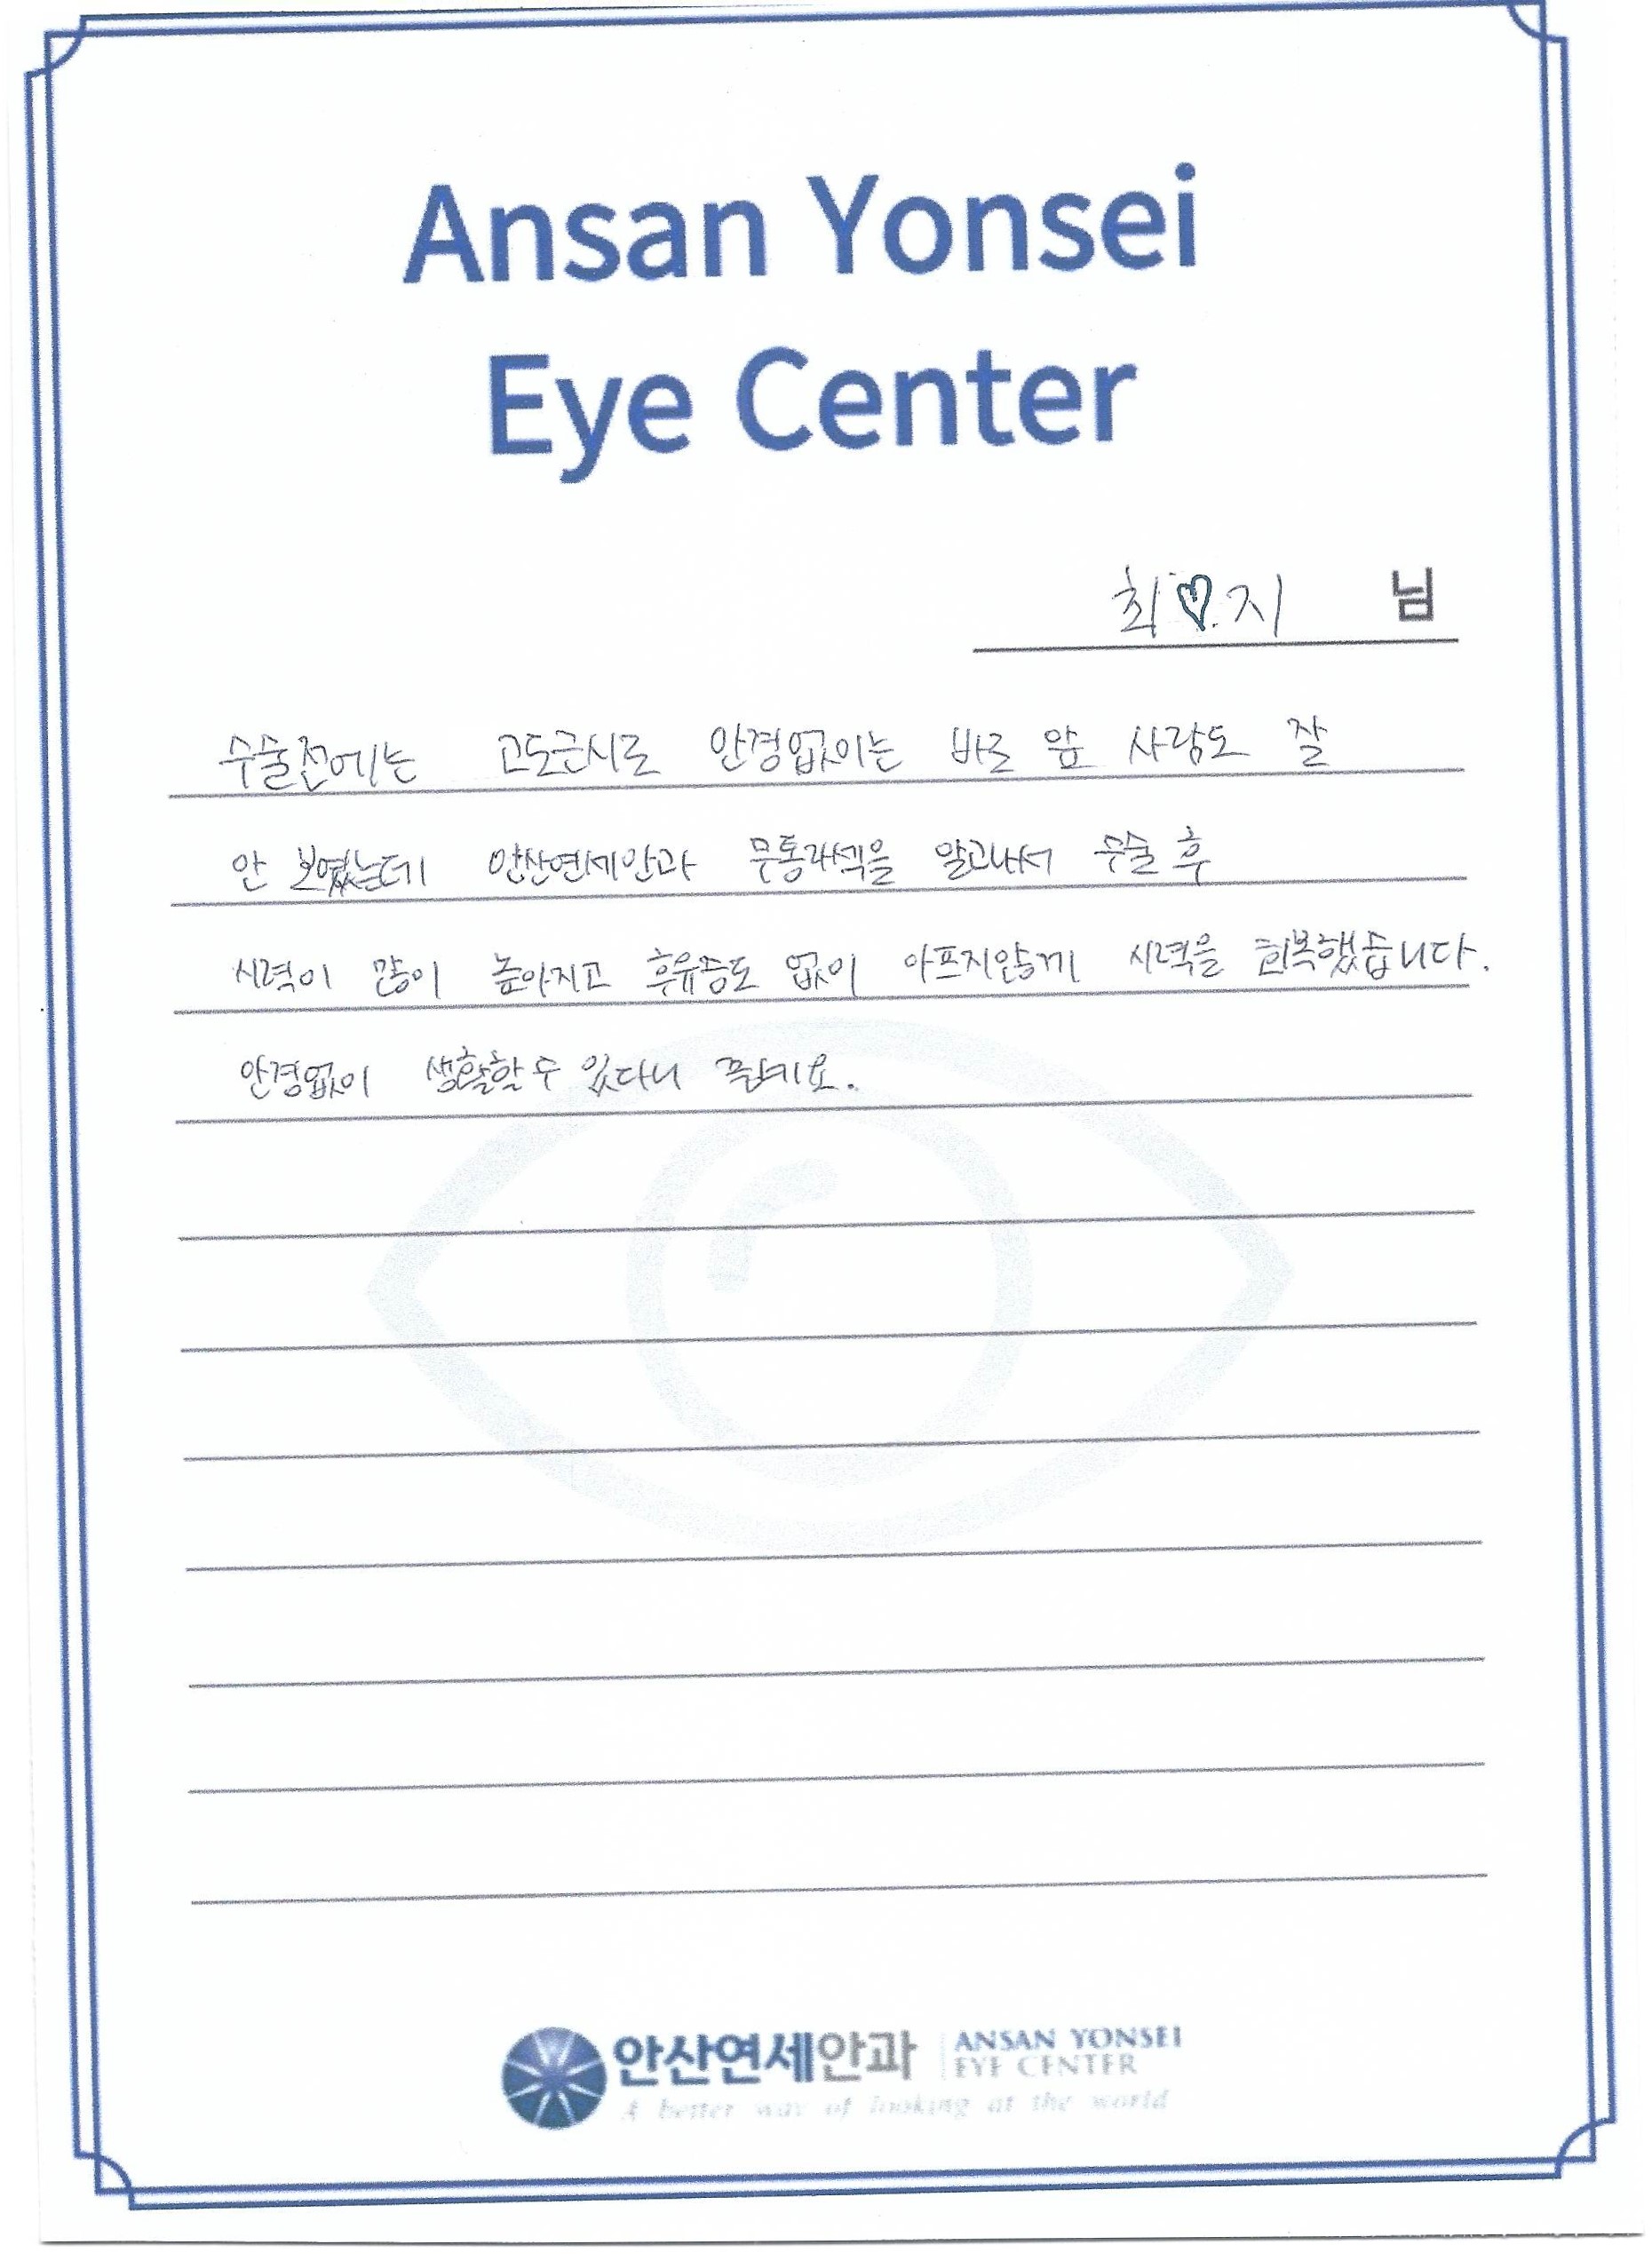 Ansan Yonsei
Eye Center
최♡지 님
수술전에는 고도근시로 안경없이는 바로 앞 사람도 잘
안 보였는데 안산연세안과 무통라섹을 알고나서 수술 후
시력이 많이 높아지고 후유증도 없이 아프지않게 시력을 회복했습니다.
안경없이 생활할 수 있다니 편네요.
안산연세안과
ANSAN YONSEI
EYE CENTER
A better way of looking at the world